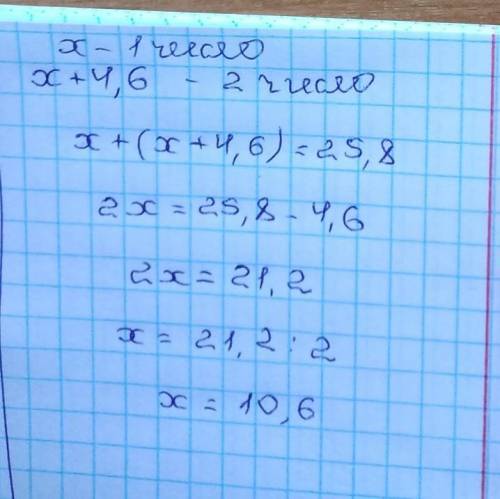 x - 1 число
x + 4,6 - 2 число
x + (x + 4,6) = 25,8
2x = 25,8 - 4,6
2x = 21,2
x = 21,2 : 2
x = 10,6